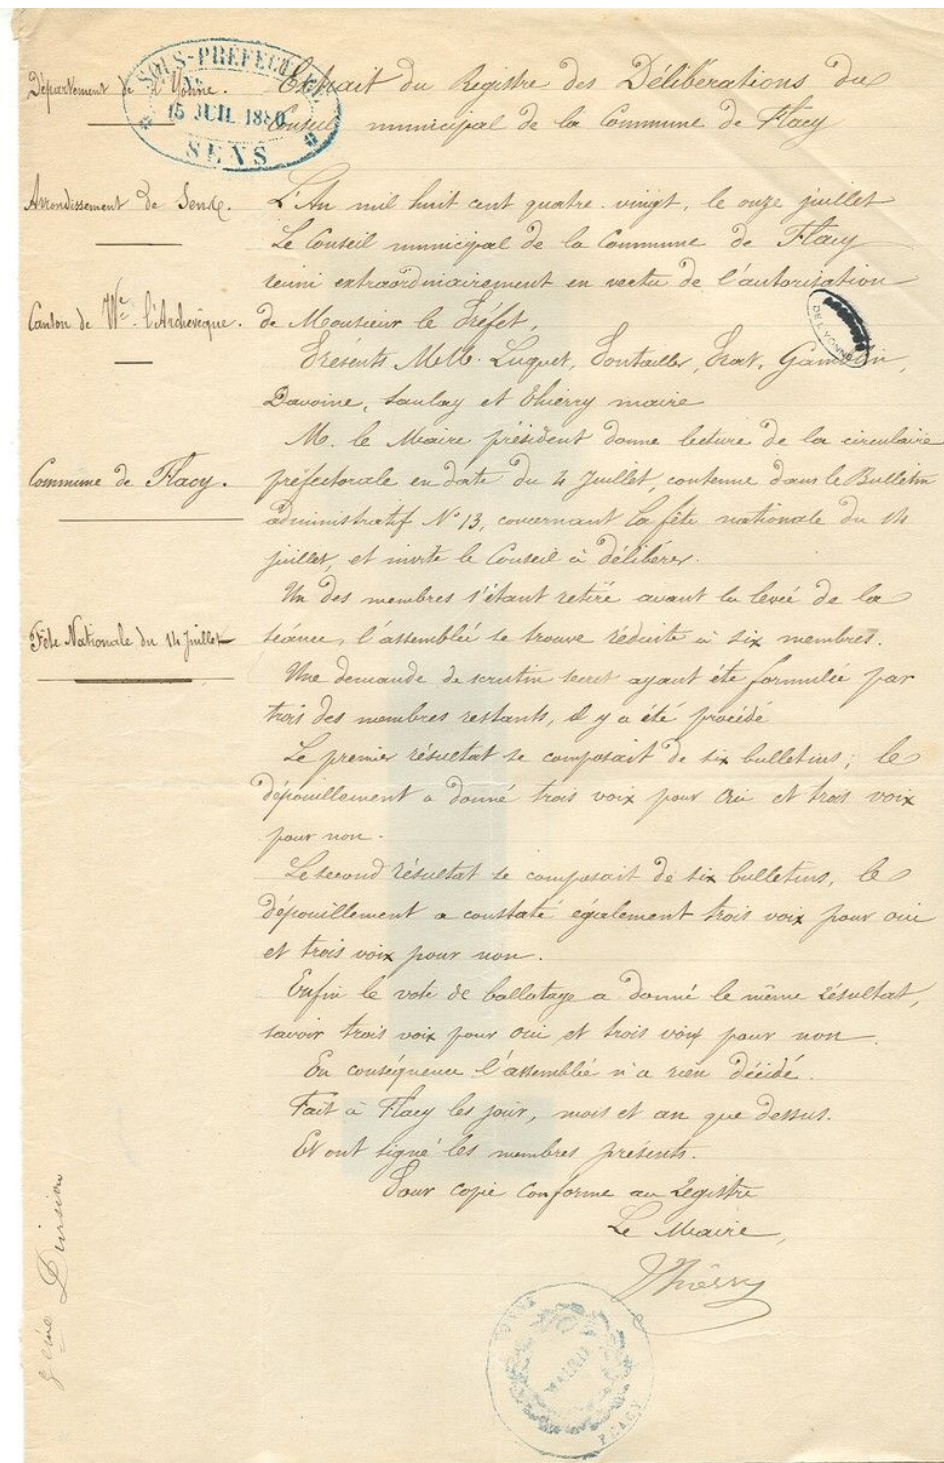 Département de l'Yonne.
SOUS-PRÉFECTURE
15 JUIL 1880
SENS
Extrait du Registre des Délibérations du
Conseil municipal de la Commune de Flacy
Arrondissement de Sens.
L'An mil huit cent quatre-vingt, le onze juillet
Le Conseil municipal de la Commune de Flacy
réuni extraordinairement en vertu de l'autorisation
Canton de Vve l'Archevêque.
de Monsieur le Préfet,
DE L'YONNE
Présents M.M. Luquet, Pontailler, Prat,
Davoine, Saulay et Thierry maire
M. le Maire président donne lecture de la circulaire
Commune de Flacy.
préfectorale en date du 4 Juillet, contenue dans le Bulletin
administratif N° 13, concernant la fête nationale du 14
juillet, et invite le Conseil à délibérer.
Un des membres s'étant retiré avant la levée de la
Fête Nationale du 14 Juillet
séance, l'assemblée se trouve réduite à six membres.
Une demande de scrutin secret ayant été formulée par
trois des membres restants, il y a été procédé
Le premier résultat se composait de six bulletins; le
dépouillement a donné trois voix pour oui et trois voix
pour non.
Le second résultat se composait de six bulletins, le
dépouillement a constaté également trois voix pour oui
et trois voix pour non.
Enfin le vote de ballotage a donné le même résultat,
savoir trois voix pour oui et trois voix pour non.
En conséquence l'assemblée n'a rien décidé.
Fait à Flacy les jour, mois et an que dessus.
Et ont signé les membres présents.
Pour copie conforme au registre
Le Maire,
Thierry
Division
MAIRIE
FLACY